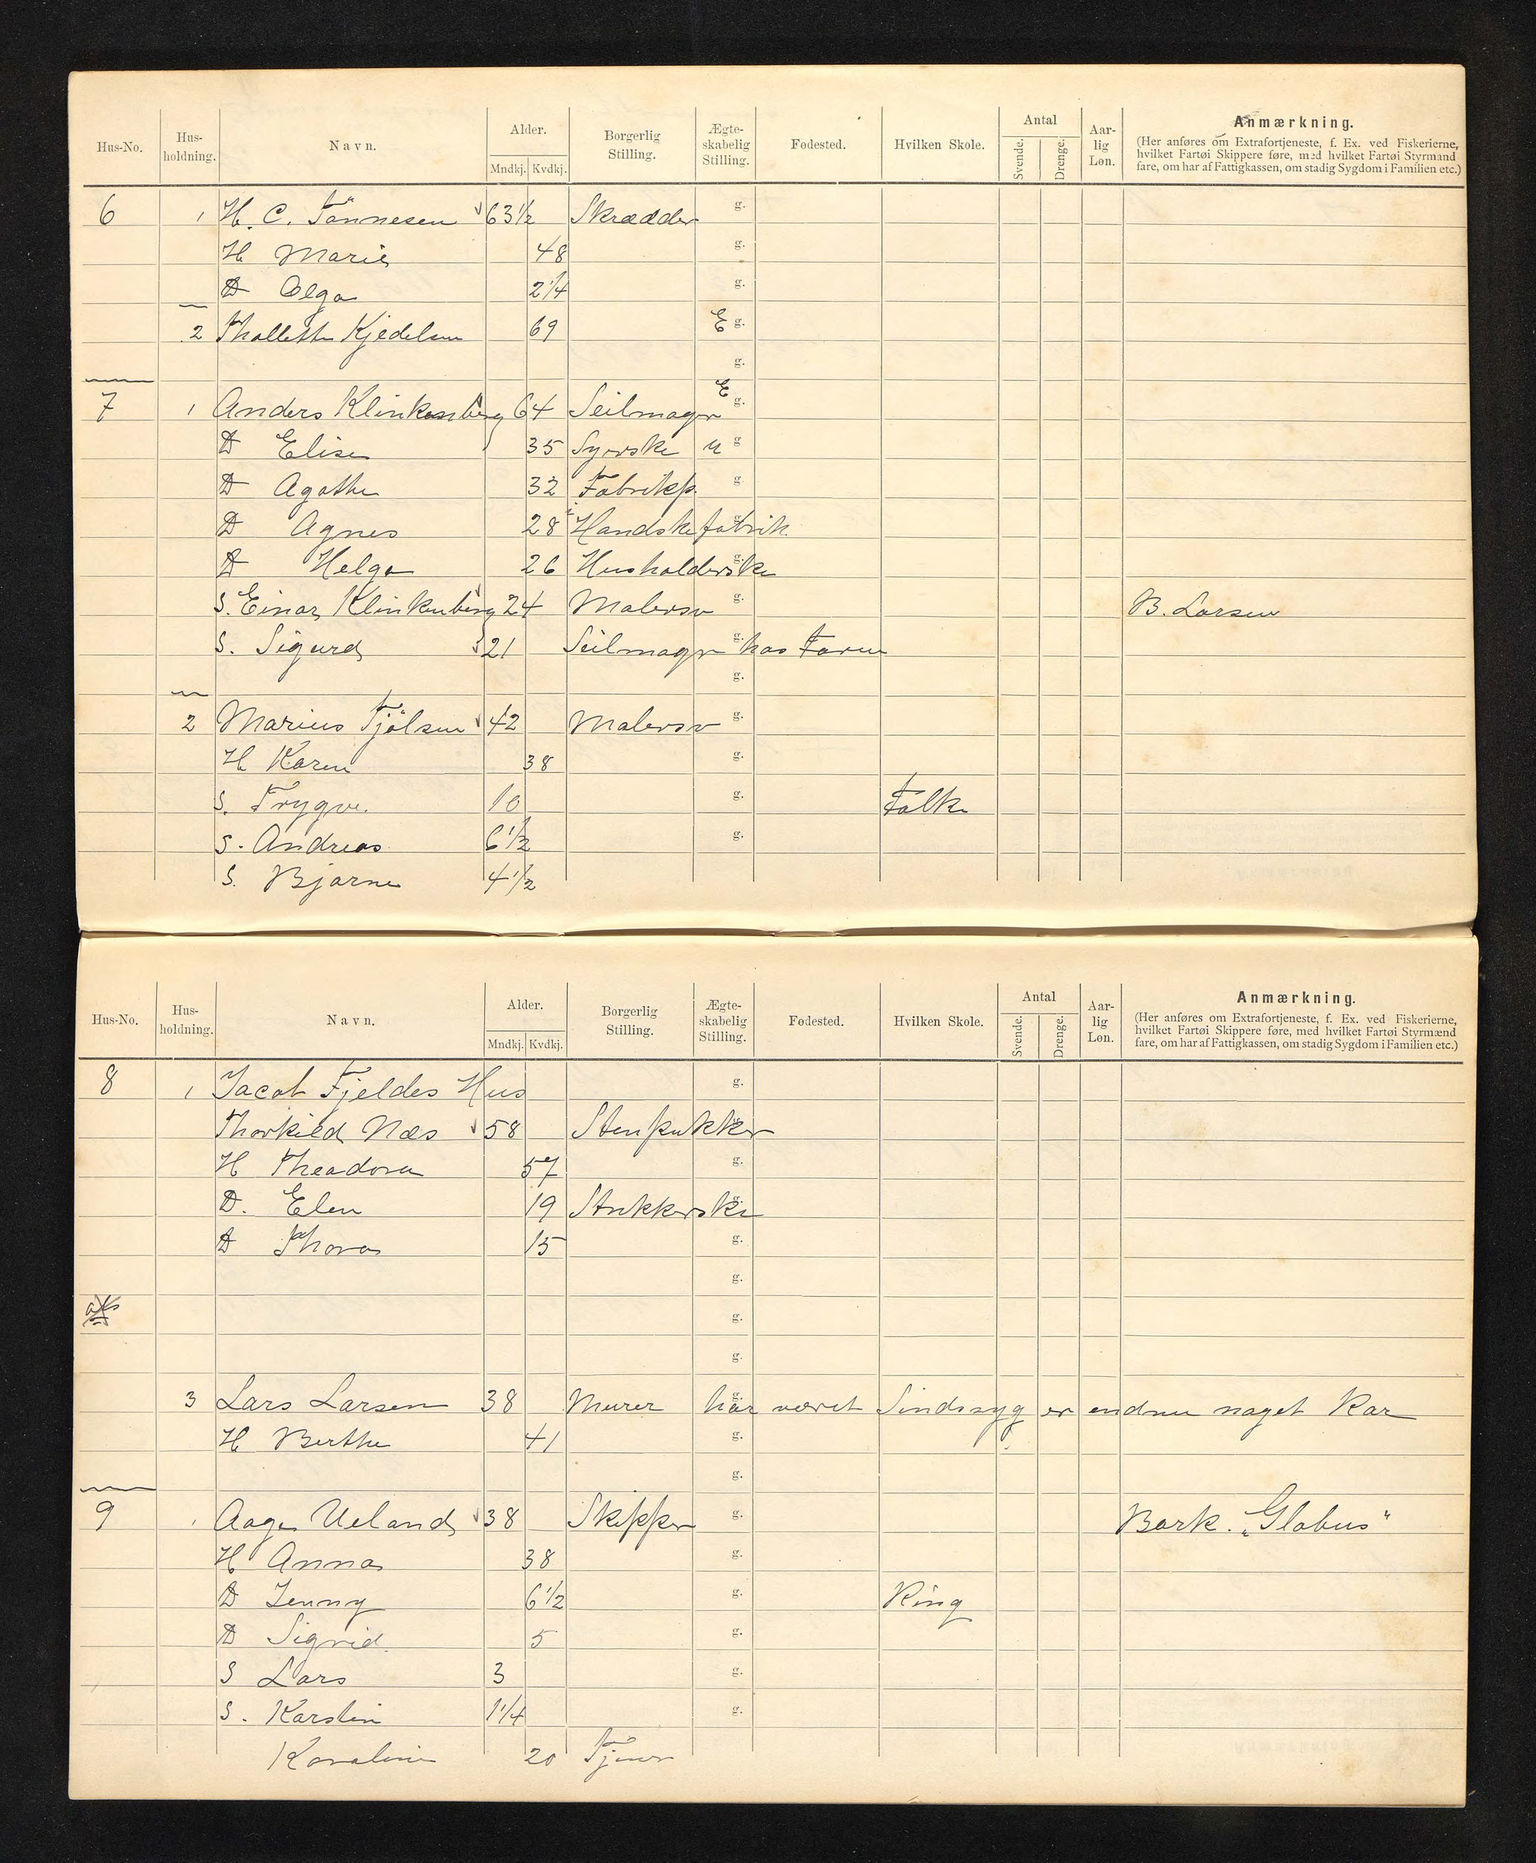 Hus-No. Hus-holdning. Navn. Alder. Mndkj. Kvdkj. Borgerlig Stilling. Ægte-skabelig Stilling. Fødested. Hvilken Skole. Antal Svende. Drenge. Aar-lig Løn. Anmærkning.
(Her anføres om Extrafortjeneste, f. Ex. ved Fiskerierne, hvilket Fartøi Skippere føre, med hvilket Fartøi Styrmænd fare, om har af Fattigkassen, om stadig Sygdom i Familien etc.)
6 1 H. C. Tönnesen 63 1/2 Skrædder g.
H Marie 48 g.
D Olga 2 1/4 g.
2 Thollette Kjedelsen 69 E g.
g.
7 1 Anders Klinkenberg 64 Seilmager E g.
D Elise 35 Syerske u g
D Agathe 32 Fabrikp. g
D Agnes 28 Handskefabrik g.
D Helga 26 Husholderske g.
S. Einar Klinkenberg 24 Malersv g. B. Larsen
S. Sigurd 21 Seilmager g. hos Faren
g.
2 Marius Fjölsen 42 Malersv g.
H Karen 38 g.
S. Trygve. 10 g. Folke
S. Andreas 6 1/2 g.
S. Bjarne 4 1/2
Hus-No. Hus-holdning. Navn. Alder. Mndkj. Kvdkj. Borgerlig Stilling. Ægte-skabelig Stilling. Fødested. Hvilken Skole. Antal Svende. Drenge. Aar-lig Løn. Anmærkning.
(Her anføres om Extrafortjeneste, f. Ex. ved Fiskerierne, hvilket Fartøi Skippere føre, med hvilket Fartøi Styrmænd fare, om har af Fattigkassen, om stadig Sygdom i Familien etc.)
8 1 Jacob Fjeldes Hus g.
Thorkild Næs 58 Stenpukker g.
H Theodora 57 g.
D. Elen 19 Strikkerske g.
D Thora 15 g.
g.
g.
g.
3 Lars Larsen 38 Murer g. har været Sindssyg er endnu noget Rar
H Berthe 41 g.
g.
9 1 Aage Ueland 38 Skipper g. Bark. „Globus"
H Anna 38 g.
D Jenny 6 1/2 g. Ring
D Sigrid. 5 g.
S Lars 3 g.
S. Karsten 1 1/4 g.
Karoline 20 Tjener